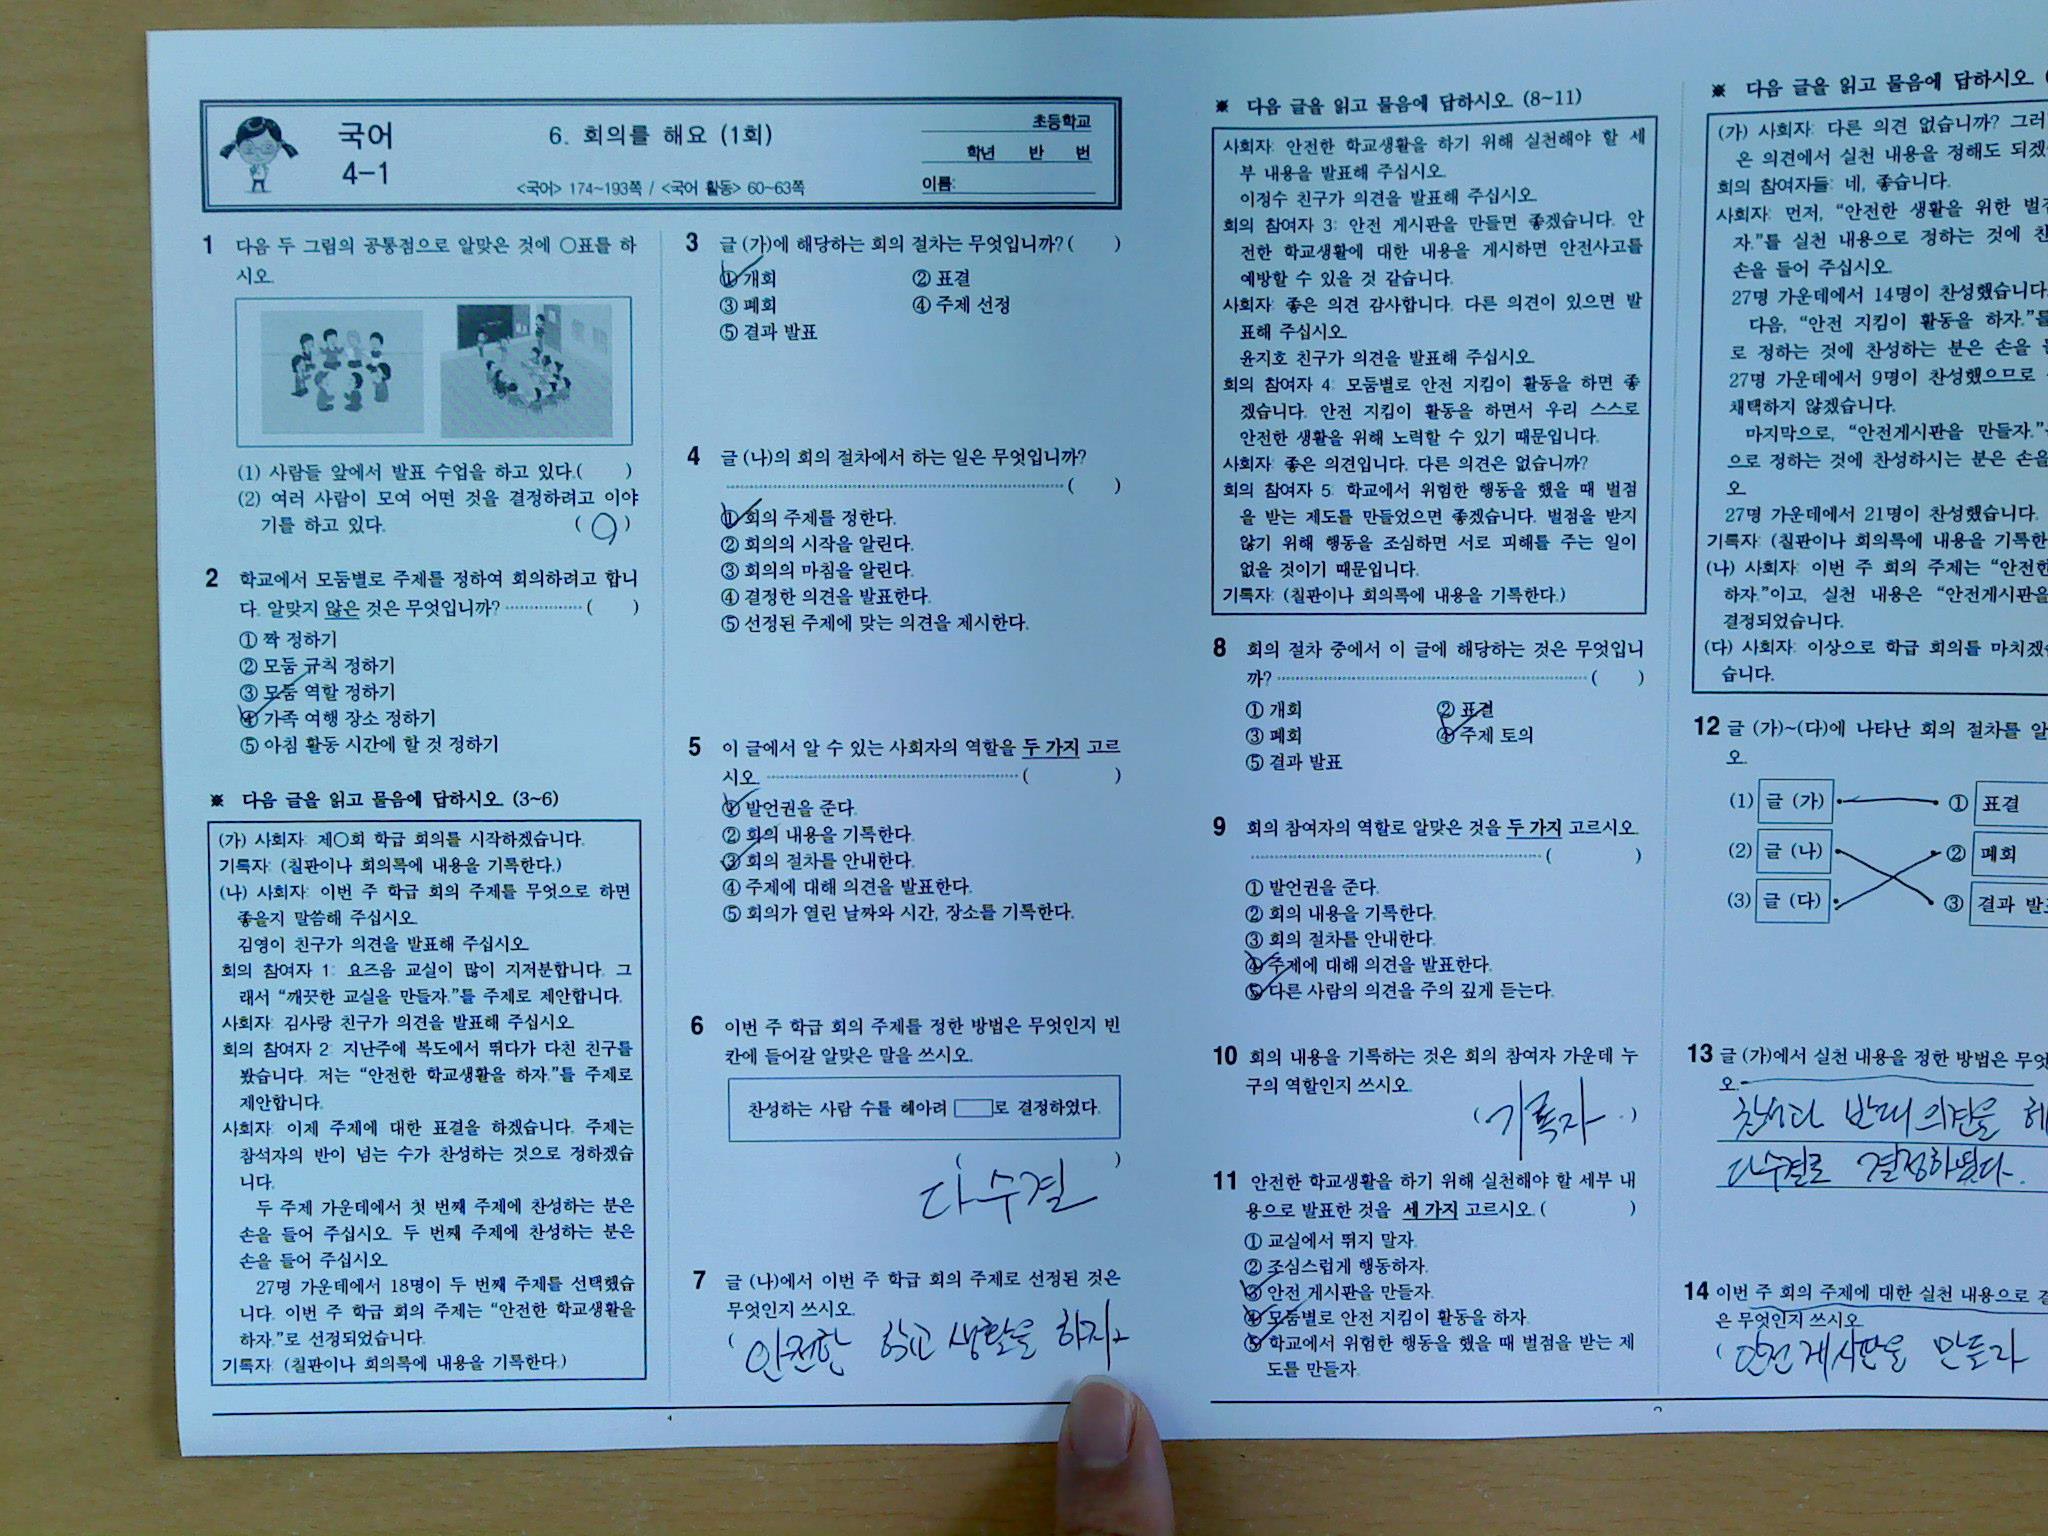 국어
4-1
6. 회의를 해요 (1회)
<국어> 174~193쪽 / <국어 활동> 60~63쪽
초등학교
학년 반 번
이름:
1 다음 두 그림의 공통점으로 알맞은 것에 ○표를 하
시오.
(1) 사람들 앞에서 발표 수업을 하고 있다.( )
(2) 여러 사람이 모여 어떤 것을 결정하려고 이야
기를 하고 있다. ( ○ )
2 학교에서 모둠별로 주제를 정하여 회의하려고 합니
다. 알맞지 않은 것은 무엇입니까? ( )
① 짝 정하기
② 모둠 규칙 정하기
③ 모둠 역할 정하기
④ 가족 여행 장소 정하기
⑤ 아침 활동 시간에 할 것 정하기
※ 다음 글을 읽고 물음에 답하시오. (3~6)
(가) 사회자: 제○회 학급 회의를 시작하겠습니다.
기록자: (칠판이나 회의록에 내용을 기록한다.)
(나) 사회자: 이번 주 학급 회의 주제를 무엇으로 하면
좋을지 말씀해 주십시오.
김영이 친구가 의견을 발표해 주십시오.
회의 참여자 1: 요즈음 교실이 많이 지저분합니다. 그
래서 “깨끗한 교실을 만들자.”를 주제로 제안합니다.
사회자: 김사랑 친구가 의견을 발표해 주십시오.
회의 참여자 2: 지난주에 복도에서 뛰다가 다친 친구를
봤습니다. 저는 “안전한 학교생활을 하자.”를 주제로
제안합니다.
사회자: 이제 주제에 대한 표결을 하겠습니다. 주제는
참석자의 반이 넘는 수가 찬성하는 것으로 정하겠습
니다.
두 주제 가운데에서 첫 번째 주제에 찬성하는 분은
손을 들어 주십시오. 두 번째 주제에 찬성하는 분은
손을 들어 주십시오.
27명 가운데에서 18명이 두 번째 주제를 선택했습
니다. 이번 주 학급 회의 주제는 “안전한 학교생활을
하자.”로 선정되었습니다.
기록자: (칠판이나 회의록에 내용을 기록한다.)
3 글 (가)에 해당하는 회의 절차는 무엇입니까?( )
① 개회 ② 표결
③ 폐회 ④ 주제 선정
⑤ 결과 발표
4 글 (나)의 회의 절차에서 하는 일은 무엇입니까?
( )
① 회의 주제를 정한다.
② 회의의 시작을 알린다.
③ 회의의 마침을 알린다.
④ 결정한 의견을 발표한다.
⑤ 선정된 주제에 맞는 의견을 제시한다.
5 이 글에서 알 수 있는 사회자의 역할을 두 가지 고르
시오. ( )
① 발언권을 준다.
② 회의 내용을 기록한다.
③ 회의 절차를 안내한다.
④ 주제에 대해 의견을 발표한다.
⑤ 회의가 열린 날짜와 시간, 장소를 기록한다.
6 이번 주 학급 회의 주제를 정한 방법은 무엇인지 빈
칸에 들어갈 알맞은 말을 쓰시오.
찬성하는 사람 수를 헤아려 □로 결정하였다.
( )
다수결
7 글 (나)에서 이번 주 학급 회의 주제로 선정된 것은
무엇인지 쓰시오.
( 안전한 학교 생활을 하자
1
※ 다음 글을 읽고 물음에 답하시오. (8~11)
사회자: 안전한 학교생활을 하기 위해 실천해야 할 세
부 내용을 발표해 주십시오.
이정수 친구가 의견을 발표해 주십시오.
회의 참여자 3: 안전 게시판을 만들면 좋겠습니다. 안
전한 학교생활에 대한 내용을 게시하면 안전사고를
예방할 수 있을 것 같습니다.
사회자: 좋은 의견 감사합니다. 다른 의견이 있으면 발
표해 주십시오.
윤지호 친구가 의견을 발표해 주십시오.
회의 참여자 4: 모둠별로 안전 지킴이 활동을 하면 좋
겠습니다. 안전 지킴이 활동을 하면서 우리 스스로
안전한 생활을 위해 노력할 수 있기 때문입니다.
사회자: 좋은 의견입니다. 다른 의견은 없습니까?
회의 참여자 5: 학교에서 위험한 행동을 했을 때 벌점
을 받는 제도를 만들었으면 좋겠습니다. 벌점을 받지
않기 위해 행동을 조심하면 서로 피해를 주는 일이
없을 것이기 때문입니다.
기록자: (칠판이나 회의록에 내용을 기록한다.)
8 회의 절차 중에서 이 글에 해당하는 것은 무엇입니
까? ( )
① 개회 ② 표결
③ 폐회 ④ 주제 토의
⑤ 결과 발표
9 회의 참여자의 역할로 알맞은 것을 두 가지 고르시오.
( )
① 발언권을 준다.
② 회의 내용을 기록한다.
③ 회의 절차를 안내한다.
④ 주제에 대해 의견을 발표한다.
⑤ 다른 사람의 의견을 주의 깊게 듣는다.
10 회의 내용을 기록하는 것은 회의 참여자 가운데 누
구의 역할인지 쓰시오.
( 기록자 )
11 안전한 학교생활을 하기 위해 실천해야 할 세부 내
용으로 발표한 것을 세 가지 고르시오.( )
① 교실에서 뛰지 말자.
② 조심스럽게 행동하자.
③ 안전 게시판을 만들자.
④ 모둠별로 안전 지킴이 활동을 하자.
⑤ 학교에서 위험한 행동을 했을 때 벌점을 받는 제
도를 만들자.
※ 다음 글을 읽고 물음에 답하시오. (
(가) 사회자: 다른 의견 없습니까? 그러
은 의견에서 실천 내용을 정해도 되겠
회의 참여자들: 네, 좋습니다.
사회자: 먼저, “안전한 생활을 위한 벌점
자.”를 실천 내용으로 정하는 것에 찬
손을 들어 주십시오.
27명 가운데에서 14명이 찬성했습니다.
다음, “안전 지킴이 활동을 하자.”를
로 정하는 것에 찬성하는 분은 손을
27명 가운데에서 9명이 찬성했으므로
채택하지 않겠습니다.
마지막으로, “안전게시판을 만들자.”
으로 정하는 것에 찬성하시는 분은 손을
오.
27명 가운데에서 21명이 찬성했습니다.
기록자: (칠판이나 회의록에 내용을 기록한
(나) 사회자: 이번 주 회의 주제는 “안전한
하자.”이고, 실천 내용은 “안전게시판을
결정되었습니다.
(다) 사회자: 이상으로 학급 회의를 마치겠
습니다.
12 글 (가)~(다)에 나타난 회의 절차를 알
오.
(1) 글 (가) ① 표결
(2) 글 (나) ② 폐회
(3) 글 (다) ③ 결과 발표
13 글 (가)에서 실천 내용을 정한 방법은 무엇
오.
찬성과 반대 의견을 헤
다수결로 결정하였다.
14 이번 주 회의 주제에 대한 실천 내용으로 결
은 무엇인지 쓰시오.
( 안전 게시판을 만들자
2